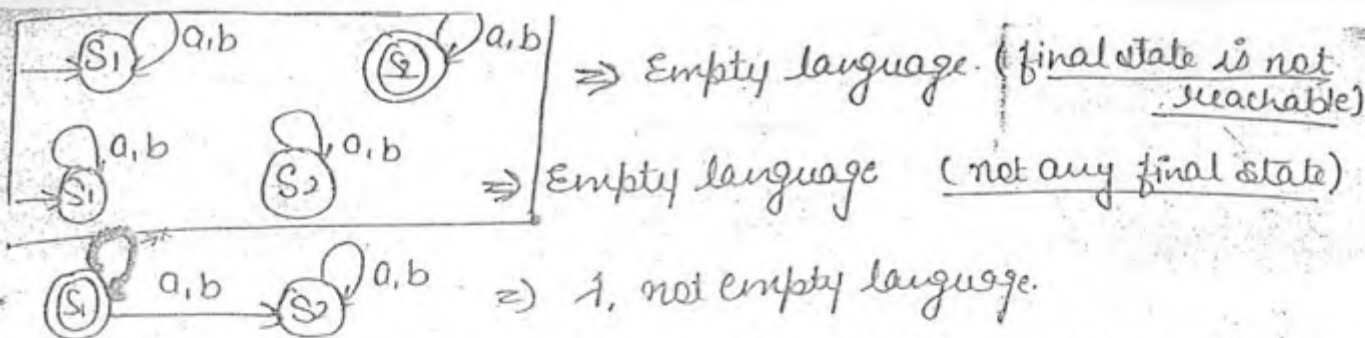 S1 a,b S2 a,b ⇒ Empty language. (final state is not
reachable)
S1 a,b S2 a,b ⇒ Empty language (not any final state)
S1 a,b S2 a,b ⇒ λ, not empty language.